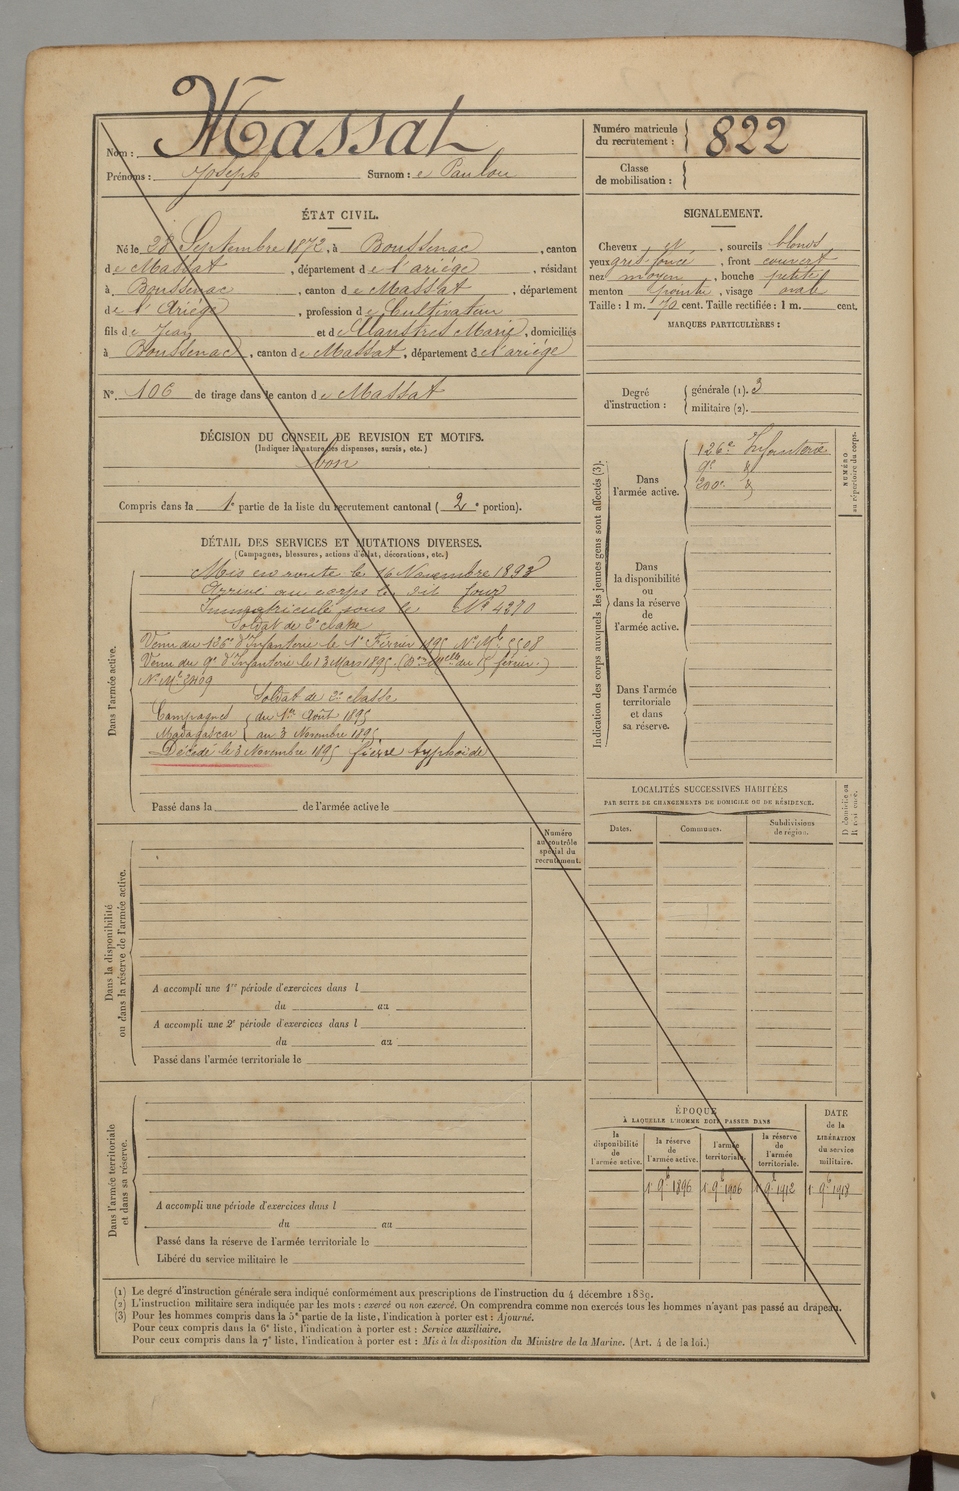 Nom : Massat
Prénoms : Joseph Surnom : e Paulou
Numéro matricule du recrutement : 822
Classe de mobilisation :
ÉTAT CIVIL.
Né le 28 Septembre 1872, à Boussenac, canton
de Massat, département de l'ariége, résidant
à Boussenac, canton de Massat, département
de l'Ariége, profession de Cultivateur
fils de Jean et de Marie, domiciliés
à Boussenac, canton de Massat, département de l'ariége
N° 106 de tirage dans le canton de Massat
DÉCISION DU CONSEIL DE REVISION ET MOTIFS.
(Indiquer la nature des dispenses, sursis, etc.)
bon
Compris dans la 1e partie de la liste du recrutement cantonal (2e portion).
DÉTAIL DES SERVICES ET MUTATIONS DIVERSES.
(Campagnes, blessures, actions d'éclat, décorations, etc.)
Dans l'armée active.
Mis en route le 16 Novembre 1893
Arrivé au corps le dit jour
Immatriculé sous le N° 4370
Soldat de 2e classe
Venu du 126e d'Infanterie le 1er Février 1895 N° Mle 5508
Venu du 9e d'Infanterie le 13 Mars 1895 du 15 février.)
N° Mle 2409
Soldat de 2e classe
Campagnes { du 1er Août 1895
Madagascar { au 3 Novembre 1895
Décédé le 3 Novembre 1895 fièvre typhoïde
Passé dans la de l'armée active le
Numéro au contrôle spécial du recrutement.
Dans la disponibilité ou dans la réserve de l'armée active.
A accompli une 1re période d'exercices dans l
du au
A accompli une 2e période d'exercices dans l
du au
Passé dans l'armée territoriale le
Dans l'armée territoriale et dans sa réserve.
A accompli une période d'exercices dans l
du au
Passé dans la réserve de l'armée territoriale le
Libéré du service militaire le
SIGNALEMENT.
Cheveux et, sourcils blonds
yeux gris foncé, front couvert
nez moyen, bouche petite
menton pointu, visage ovale
Taille : 1 m. 70 cent. Taille rectifiée : 1 m. cent.
MARQUES PARTICULIÈRES :
Degré d'instruction : { générale (1). 3
{ militaire (2).
Indication des corps auxquels les jeunes gens sont affectés (3).
NUMÉRO au répertoire du corps.
Dans l'armée active.
126e Infanterie
9e d
200e d
Dans la disponibilité ou dans la réserve de l'armée active.
Dans l'armée territoriale et dans sa réserve.
LOCALITÉS SUCCESSIVES HABITÉES
PAR SUITE DE CHANGEMENTS DE DOMICILE OU DE RÉSIDENCE.
Dates. Communes. Subdivisions de région. D domicile ou R résidence.
ÉPOQUE
À LAQUELLE L'HOMME DOIT PASSER DANS
la disponibilité de l'armée active. la réserve de l'armée active. l'armée territoriale. la réserve de l'armée territoriale. DATE de la LIBÉRATION du service militaire.
1 9b 1896 1 9b 1906 1 9b 1912 1 9b 1918
(1) Le degré d'instruction générale sera indiqué conformément aux prescriptions de l'instruction du 4 décembre 1889.
(2) L'instruction militaire sera indiquée par les mots : exercé ou non exercé. On comprendra comme non exercés tous les hommes n'ayant pas passé au drapeau.
(3) Pour les hommes compris dans la 5e partie de la liste, l'indication à porter est : Ajourné.
Pour ceux compris dans la 6e liste, l'indication à porter est : Service auxiliaire.
Pour ceux compris dans la 7e liste, l'indication à porter est : Mis à la disposition du Ministre de la Marine. (Art. 4 de la loi.)